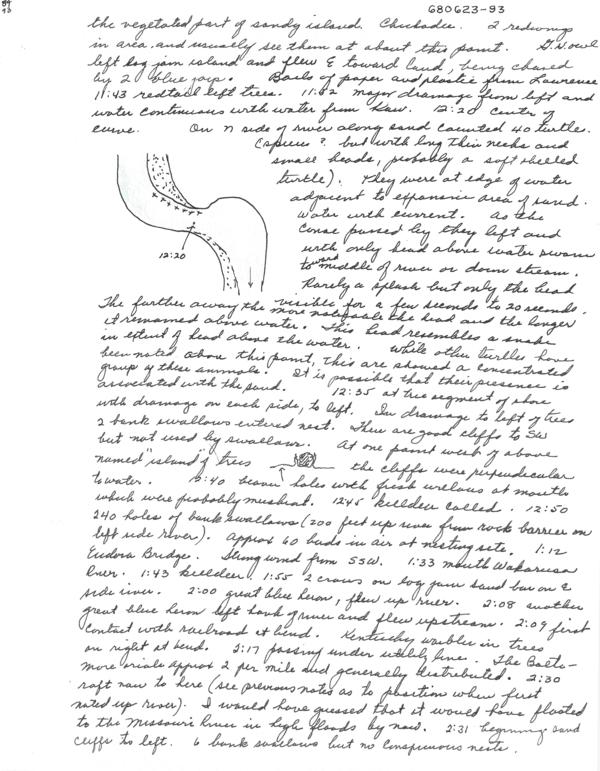 89
93
680623-93
the vegetated part of sandy island. Chickadee. 2 redwings
in area and usually see them at about this point. G.H. owl
left log jam island and flew E toward land, being chased
by 2 blue jays. Bails of paper and plastic from Lawrence
11:43 redtail left trees. 11:52 major drainage from left and
water continuous with water from Kaw. 12:20 center of
curve. On N side of river along sand counted 40 turtles.
(species? but with long thin necks and
small heads, probably a soft shelled
turtle). They were at edge of water
adjacent to expansive area of sand.
Water with current. As the
canoe passed by they left and
with only head above water swam
toward middle of river or down stream.
Rarely a splash but only the head
12:20
visible for a few seconds to 20 seconds.
The further away the more noticeable the head and the longer
it remained above water. This head resembles a snake
in extent of head above the water. While other turtles have
been noted above this point, this area showed a concentrated
group of these animals. It is possible that their presence is
associated with the sand. 12:35 at tree segment of shore
with drainage on each side, to left. In drainage to left of trees
2 bank swallows entered nest. There are good cliffs to SW
but not used by swallows. At one point west of above
named "island" of trees the cliffs were perpendicular
to water. 12:40 beaver holes with fresh willows at mouth
which were probably muskrat. 12:45 killdeer called. 12:50
240 holes of bank swallows (200 feet up river from rock barrier on
left side river). Approx 60 birds in air at nesting site. 1:12
Eudora Bridge. Strong wind from SSW. 1:33 mouth Wakarusa
River. 1:43 killdeer. 1:55 2 crows on log jam sand bar on E
side river. 2:00 great blue heron, flew up river. 2:08 another
great blue heron left bank of river and flew upstream. 2:09 first
contact with railroad at bend. Kentucky warbler in trees
on right at bend. 2:17 passing under utility line. The Balti-
more oriole approx 2 per mile and generally distributed. 2:30
raft now to here (see previous notes as to position when first
noted up river). I would have guessed that it would have floated
to the Missouri River in high floods by now. 2:31 beginning sand
cliffs to left. 6 bank swallows but no conspicuous nests.